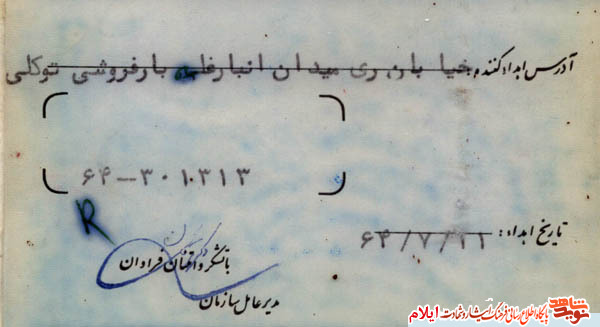 آدرس اهداء کننده: خیابان ری میدان انبارغله بارفروشی توکلی
۶۴-۳۰۱۰۳۱۳
R
تاریخ اهداء: ۶۴/۷/۱۱
با تشکر و امتنان فراوان
مدیر عامل سازمان
نوید شاهد
پایگاه اطلاع رسانی فرهنگ ایثار و شهادت ایلام